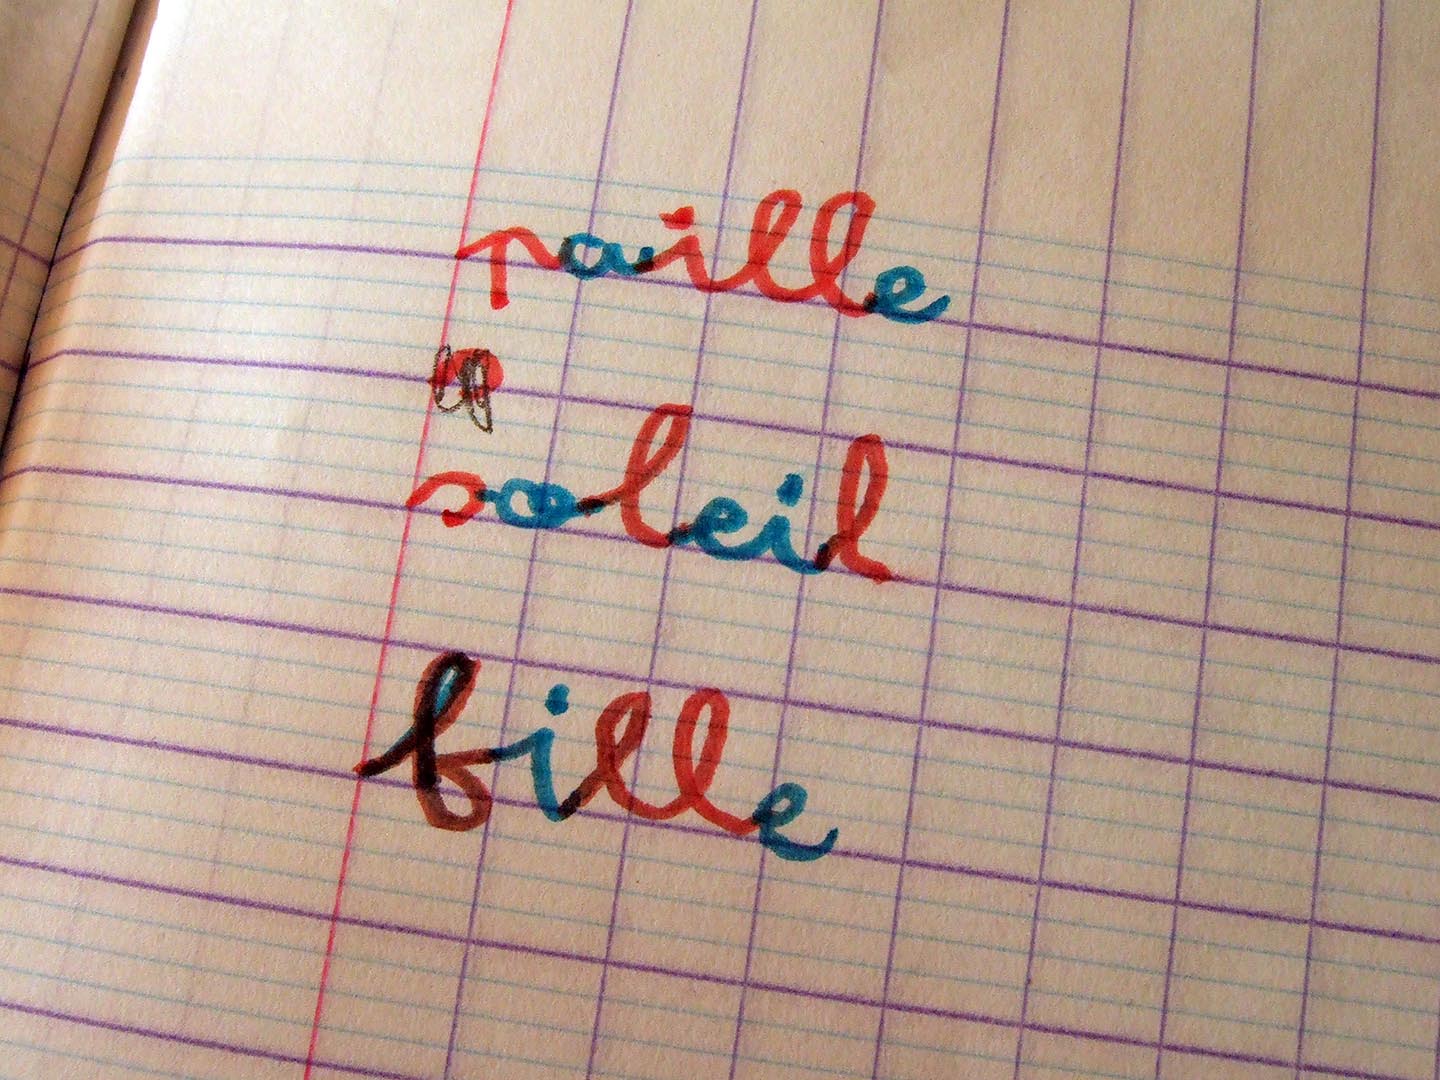 paille
soleil
fille